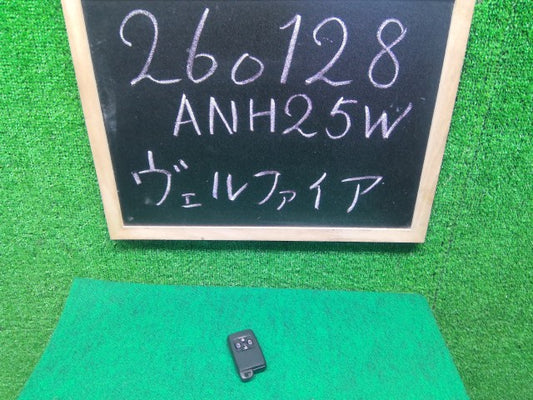 260128
ANH25W
ヴェルファイア